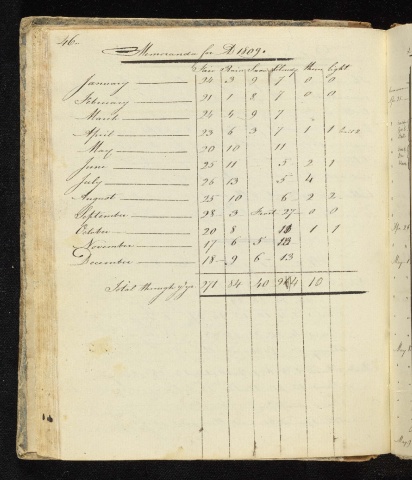 46.
Memoranda for A 1809.
Fair Rain Snow Cloudy Thun Light
January 24 3 9 7 0 0
February 21 1 8 7 0 0
March 24 4 9 7
April 23 6 3 7 1 1
May 20 10 11
June 25 11 5 2 1
July 26 13 5 4
August 25 10 6 2 2
Septembre 28 3 Frost 27 0 0
Octobre 20 8 1 1
Novembre 17 6 5
Decembre 18 9 6 13
Total through ye yr 271 84 40 10